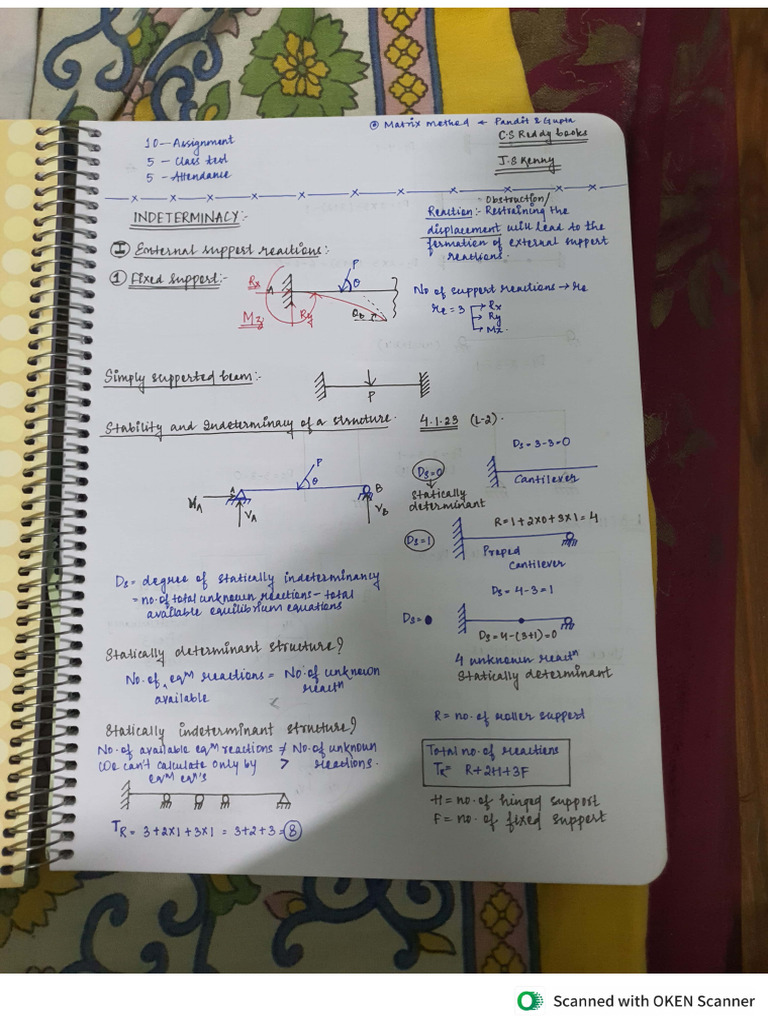 10 - Assignment
5 - Class test
5 - Attendance
Matrix method ← Pandit & Gupta
C.S Reddy books
J.S Kenny
INDETERMINACY:-
Reaction:- Obstruction/
Restraining the
displacement will lead to the
formation of external support
reactions.
I External support reactions:
1 Fixed support:-
Rx
A
P
θ
Mz
Ry
θb
No of support reactions → re
re = 3
Rx
Ry
Mz.
Simply supported beam:-
P
Stability and Indeterminacy of a structure.
4.1.23 (L-2).
P
θ
A
B
HA
VA
VB
Ds=0
Statically
determinant
Ds = 3-3=0
Cantilever
Ds=1
R=1+2x0+3x1=4
Proped
Cantilever
Ds = 4-3=1
Ds=0
Ds=4-(3+1)=0
4 unknown reactn
Statically determinant
Ds = degree of statically indeterminancy
= no. of total unknown reactions - total
available equilibrium equations
Statically determinant structure?
No. of eqm reactions = No. of unknown
available reactn
<
Statically indeterminant structure?
No. of available eqm reactions ≠ No. of unknown
We can't calculate only by > reactions.
eqm eqn's
TR = 3+2x1+3x1 = 3+2+3= 8
R = no. of roller support
Total no. of reactions
TR= R+2H+3F
H = no. of hinged support
F = no. of fixed support
Scanned with OKEN Scanner